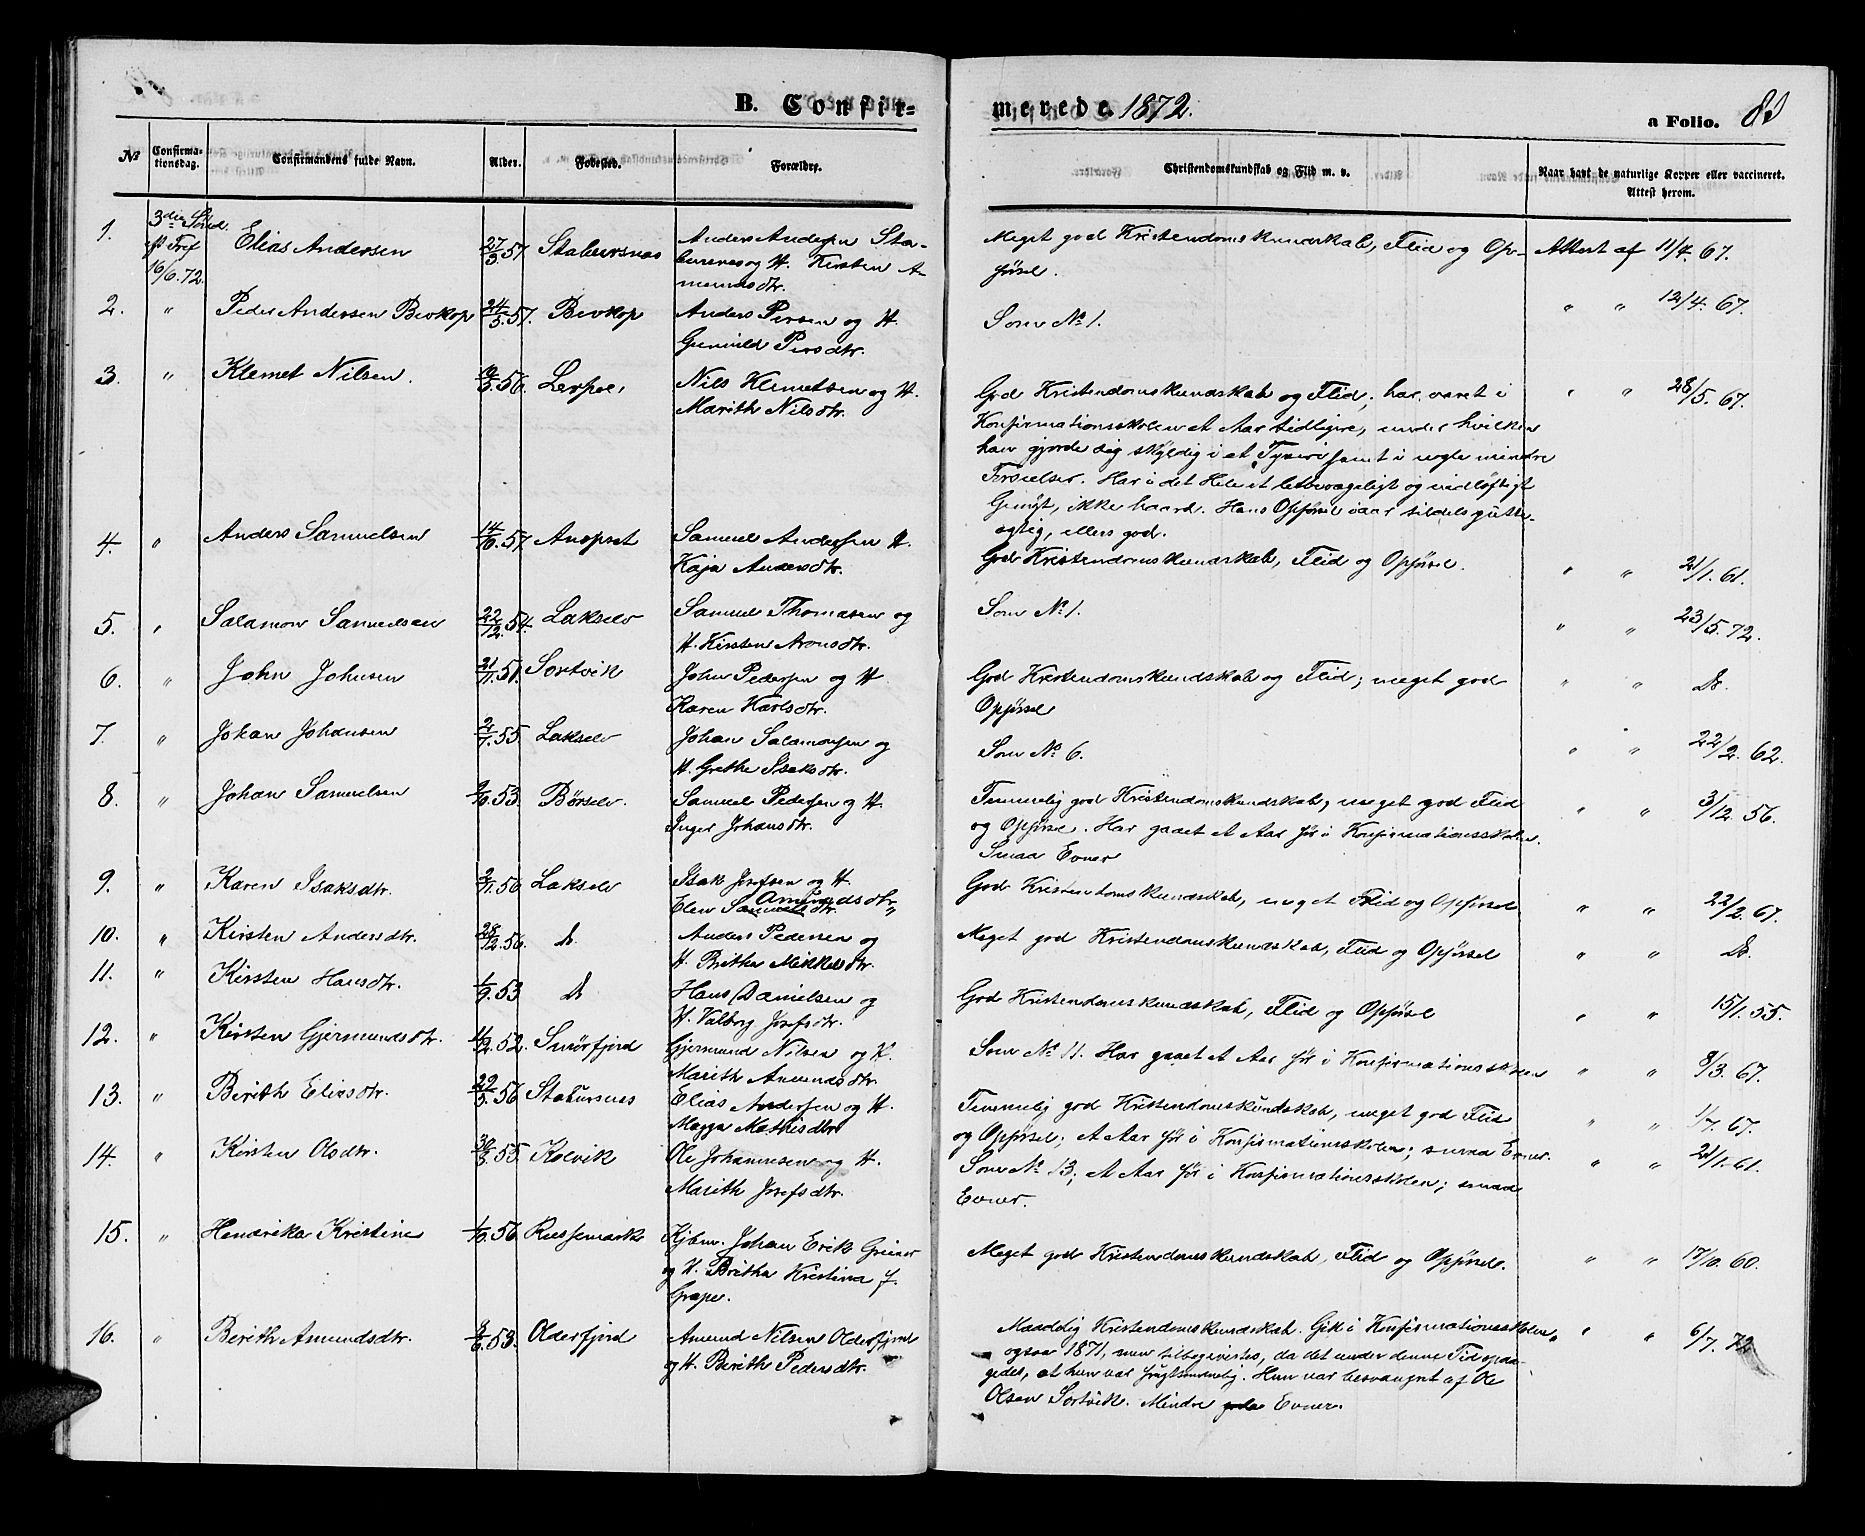 B. Confir-
merede 1872.
a Folio.
№
Confirma-
tionsdag.
Confirmandens fulde Navn.
Alder.
Fødested.
Forældre.
Christendomskundskab og Flid m. v.
Naar havt de naturlige Kopper eller vaccineret.
Attest herom.
1.
3die Sönd.
eft Tref
16/6.72.
Elias Andersen
27/3.57.
Stabursnæs
Anders Andersen Sta-
bursnes og H. Kirsten A-
mundsdtr.
Meget god Kristendomskundskab, Flid og Op-
førsel.
Attest af 11/4. 67.
2.
"
Peder Andersen Bevkop
24/5.57.
Bevkop
Anders Persen og H.
Gunnild Persdtr.
Som № 1.
" " 12/4. 67.
3.
"
Klemet Nilsen.
Nils Klemetsen og H.
Marith Nilsdtr.
God Kristendomskundskab og Flid; har været i
Konfirmationsskolen et Aar tidligere, under hvilken
han gjorde sig skyldig i et Tyveri samt i nogle mindre
Forseelser. Har i det Hele et letbevægeligt og vidløftigt
Gemyt, ikke haard. Hans Opførsel var tildels gutte-
agtig, ellers god.
" " 28/5. 67.
4.
"
Anders Samuelsen
14/10.57.
Anopset
Samuel Andersen H.
Kaja Andersdtr.
God Kristendomskundskab, Flid og Opførsel.
" " 21/1. 61.
5.
"
Salamon Samuelsen
22/12.54.
Lakselv
Samuel Thomasen og
H. Kirsten Aronsdtr.
Som № 1.
" " 23/5. 72.
6.
"
John Johnsen
21/11.51.
Sortvik
John Pedersen og H
Karen Karlsdtr.
God Kristendomskundskab og Flid; meget god
Opførsel
" " Do.
7.
"
Johan Johansen
2/1.55
Lakselv
Johan Salamonsen og
H. Grethe Isaksdtr.
Som № 6.
" " 22/2. 62.
8.
"
Johan Samuelsen
9/10.53.
Børselv.
Samuel Pedersen og H
Inger Johansdtr.
Temmelig god Kristendomskundskab, meget god Flid
og Opførsel. Har gaaet et Aar før i Konfirmationsskolen.
Smaa Evner
" " 3/12. 56.
9.
"
Karen Isaksdtr.
2/11.56
Lakselv
Isak Josefsen og H.
Amundsdtr
Elen Samuelsdtr. "
God Kristendomskundskab, meget Flid og Opførsel.
" " 22/2. 67.
10.
"
Kirsten Andersdtr.
28/12.56.
Do
Anders Pedersen og
H. Britha Mikkelsdtr.
Meget god Kristendomskundskab, Flid og Opførsel
" " Do.
11.
"
Kirsten Hansdtr.
1/9.53
Do
Hans Danielsen og
H. Valborg Josefsdtr.
God Kristendomskundskab, Flid og Opførsel
" " 15/1. 55.
12.
"
Kirsten Gjermundsdtr.
Smørfjord
Gjermund Nilsen og H.
Marith Amundsdtr.
Som № 11. Har gaaet et Aar før i Konfirmationsskolen
" " 8/3. 67.
13.
"
Berith Eliasdtr.
22/5.56
Stabursnes
Elias Andersen og H.
Magga Mathisdtr
Temmelig god Kristendomskundskab, meget god Flid
og Opførsel; et Aar før i Konfirmationsskolen; smaa Evner.
" " 1/7. 67.
14.
"
Kirsten Olsdtr.
30/3.55
Kolvik
Ole Johannesen og H.
Marith Josefsdtr.
Som № 13; et Aar før i Konfirmationsskolen; smaa
Evner.
" " 21/1. 61.
15.
"
Hendrika Kristine
1/10.56
Russemarke
Kjbm. Johan Erik Greiner
og H. Britha Kristina f.
Grape.
Meget god Kristendomskundskab, Flid og Opførsel.
" " 17/10. 60.
16.
"
Berith Amundsdtr.
8/6.53.
Olderfjord
Amund Nilsen Olderfjord
og H. Berith Pedersdtr.
Maadelig Kristendomskundskab. Gik i Konfirmationsskolen
ogsaa 1871, men tilbagevistes, da det under denne Tid opda-
gedes, at hun var frugtsommelig. Hun var besvangret af Ole
Olsen Sortvik. Mindre gode Evner.
" " 6/7. 72